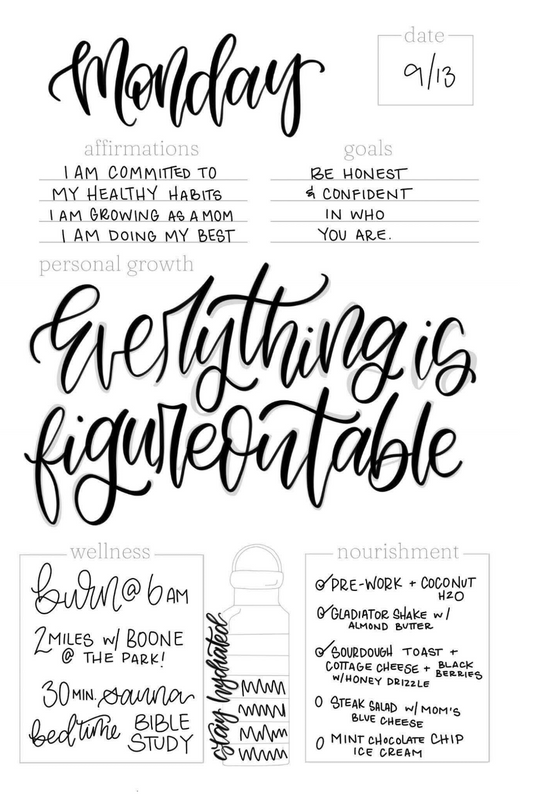 monday
date
9/13
affirmations
I AM COMMITTED TO
MY HEALTHY HABITS
I AM GROWING AS A MOM
I AM DOING MY BEST
goals
BE HONEST
& CONFIDENT
IN WHO
YOU ARE.
personal growth
Everything is
figureoutable
wellness
burn @ 6 AM
2 MILES W/ BOONE
@ THE PARK!
30 MIN. sauna
bedtime BIBLE
STUDY
stay hydrated
nourishment
PRE-WORK + COCONUT
H2O
GLADIATOR SHAKE W/
ALMOND BUTTER
SOURDOUGH TOAST +
COTTAGE CHEESE + BLACK
BERRIES
W/HONEY DRIZZLE
STEAK SALAD W/ MOM'S
BLUE CHEESE
MINT CHOCOLATE CHIP
ICE CREAM